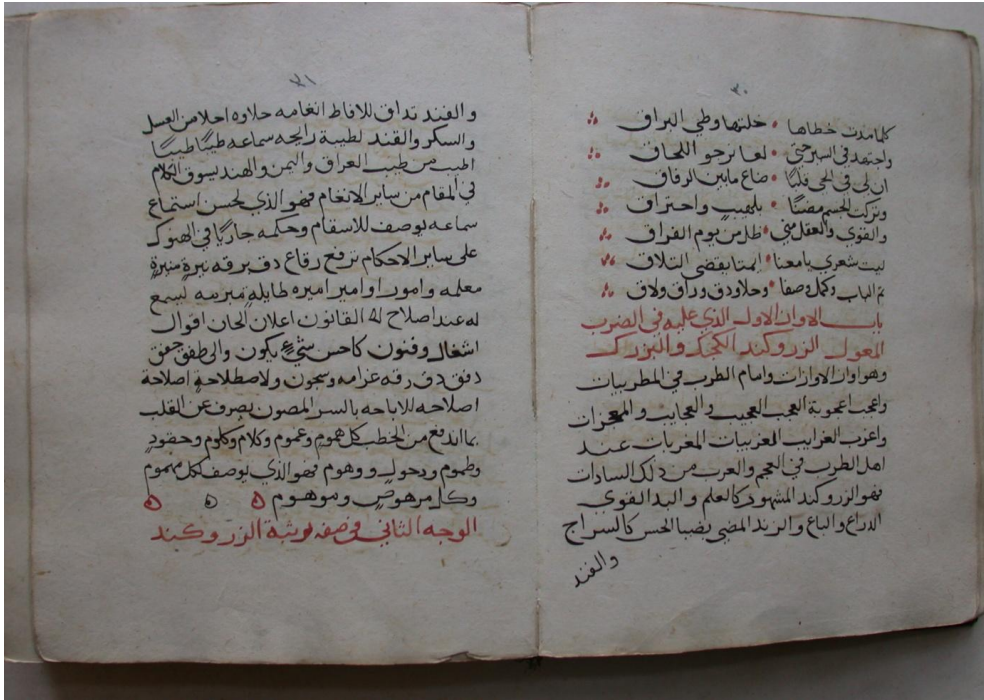 ٣٠
كلما مدت خطاها • خلتها وطي البراق
واجتهد في السير حتى • لعا نرجو اللحاق
ان لي في الحي قلبًا • ضاع ما بين الرفاق
وتركت الجسم مضنًا • بلهيب واحتراق
والقوي والعقل مني • طل من يوم الفراق
ليت شعري يا معنا • ايمتا يقضى التلاق
تم الباب وكمل وصفا • وحلا ودق وراق ولاق
باب الاواز الاول الذي عليه في الضرب
المعول الزروكند الكجك والبزرك
وهو اواز الاوازات وامام الطرب في المطربيات
واعجب اعجوبة العجب العجيب والعجايب والمعجزات
واغرب الغرايب الغربيات المغربات عند
اهل الطرب في العجم والعرب من ذلك السادات
فهو الزروكند المشهود كالعلم والبد القوي
الدراع والباع والزند المضي بضيا الحسن كالسراج
والقند
٣١
والقند تداق للافاظ انغامه حلاوه احلا من العسل
والسكر والقند لطيبة رايحه سماعه طيبًا طيبًا
اطيب من طيب العراق واليمن والهند يسوق الكلام
في المقام من ساير الانغام فهو الذي لحسن استماع
سماعه يوصف للاسقام وحكمه جاريًا في الهنوك
على ساير الاحكام ترفع رقاع دق برقه نيرة منيرة
معلمه وامور اوامير اميره طايلة مبرمه لسمع
له عند اصلاح له القانون اعلان الحان اقوال
اشغال وفنون كاحسن شيء يكون والى طفق جفق
دفق دق رقه غرامه وسجون ولاصطلاحه اصلاحة
اصلاحه للاباحه بالسر المصون يصرف عن القلب
بما اندفع من الخطب كل هموم وغموم وكلام وكلوم وحقود
وطموم ودحول ووهوم فهو الذي يوصف لكل مهموم
وكل مرهوص وموهوم ه ه ه
الوجه الثاني في صفة نوبثة الزروكند